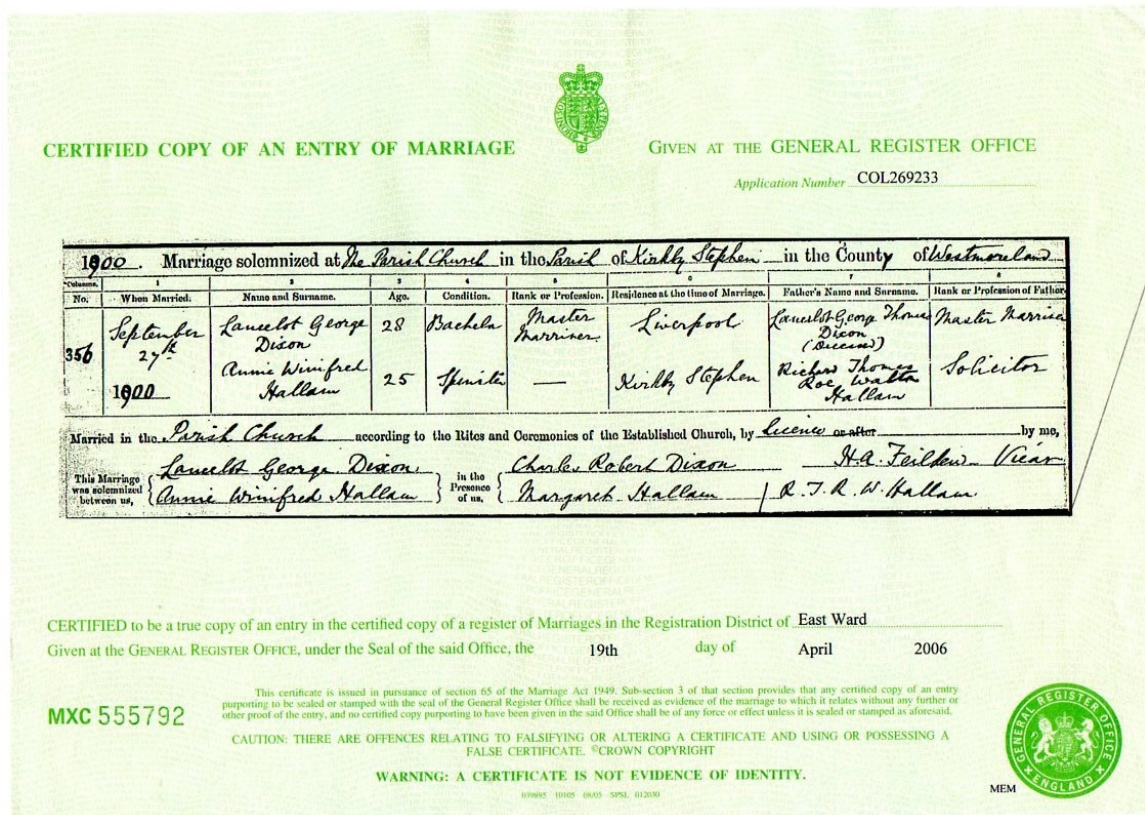 CERTIFIED COPY OF AN ENTRY OF MARRIAGE
GIVEN AT THE GENERAL REGISTER OFFICE
Application Number COL269233
1900. Marriage solemnized at The Parish Church in the Parish of Kirkby Stephen in the County of Westmoreland
Columns. 1 2 3 4 5 6 7 8
No. When Married. Name and Surname. Age. Condition. Rank or Profession. Residence at the time of Marriage. Father's Name and Surname. Rank or Profession of Father.
356 September 27th 1900
Lancelot George Dixon 28 Bachelor Master Marriner Liverpool Lancelot George Thomas Dixon (Deceased) Master Marriner
Annie Winifred Hallam 25 Spinster — Kirkby Stephen Richard Thomas Roe Walton Hallam Solicitor
Married in the Parish Church according to the Rites and Ceremonies of the Established Church, by Licence or after by me,
H.A. Feilden Vicar
This Marriage was solemnized between us, Lancelot George Dixon Annie Winifred Hallam
in the Presence of us, Charles Robert Dixon Margaret Hallam R. T. R. W. Hallam
CERTIFIED to be a true copy of an entry in the certified copy of a register of Marriages in the Registration District of East Ward
Given at the GENERAL REGISTER OFFICE, under the Seal of the said Office, the 19th day of April 2006
MXC 555792
This certificate is issued in pursuance of section 65 of the Marriage Act 1949. Sub-section 3 of that section provides that any certified copy of an entry
purporting to be sealed or stamped with the seal of the General Register Office shall be received as evidence of the marriage to which it relates without any further or
other proof of the entry, and no certified copy purporting to have been given in the said Office shall be of any force or effect unless it is sealed or stamped as aforesaid.
CAUTION: THERE ARE OFFENCES RELATING TO FALSIFYING OR ALTERING A CERTIFICATE AND USING OR POSSESSING A
FALSE CERTIFICATE. ©CROWN COPYRIGHT
WARNING: A CERTIFICATE IS NOT EVIDENCE OF IDENTITY.
10105 08/05 SPSL 012030
MEM
GENERAL REGISTER OFFICE
ENGLAND